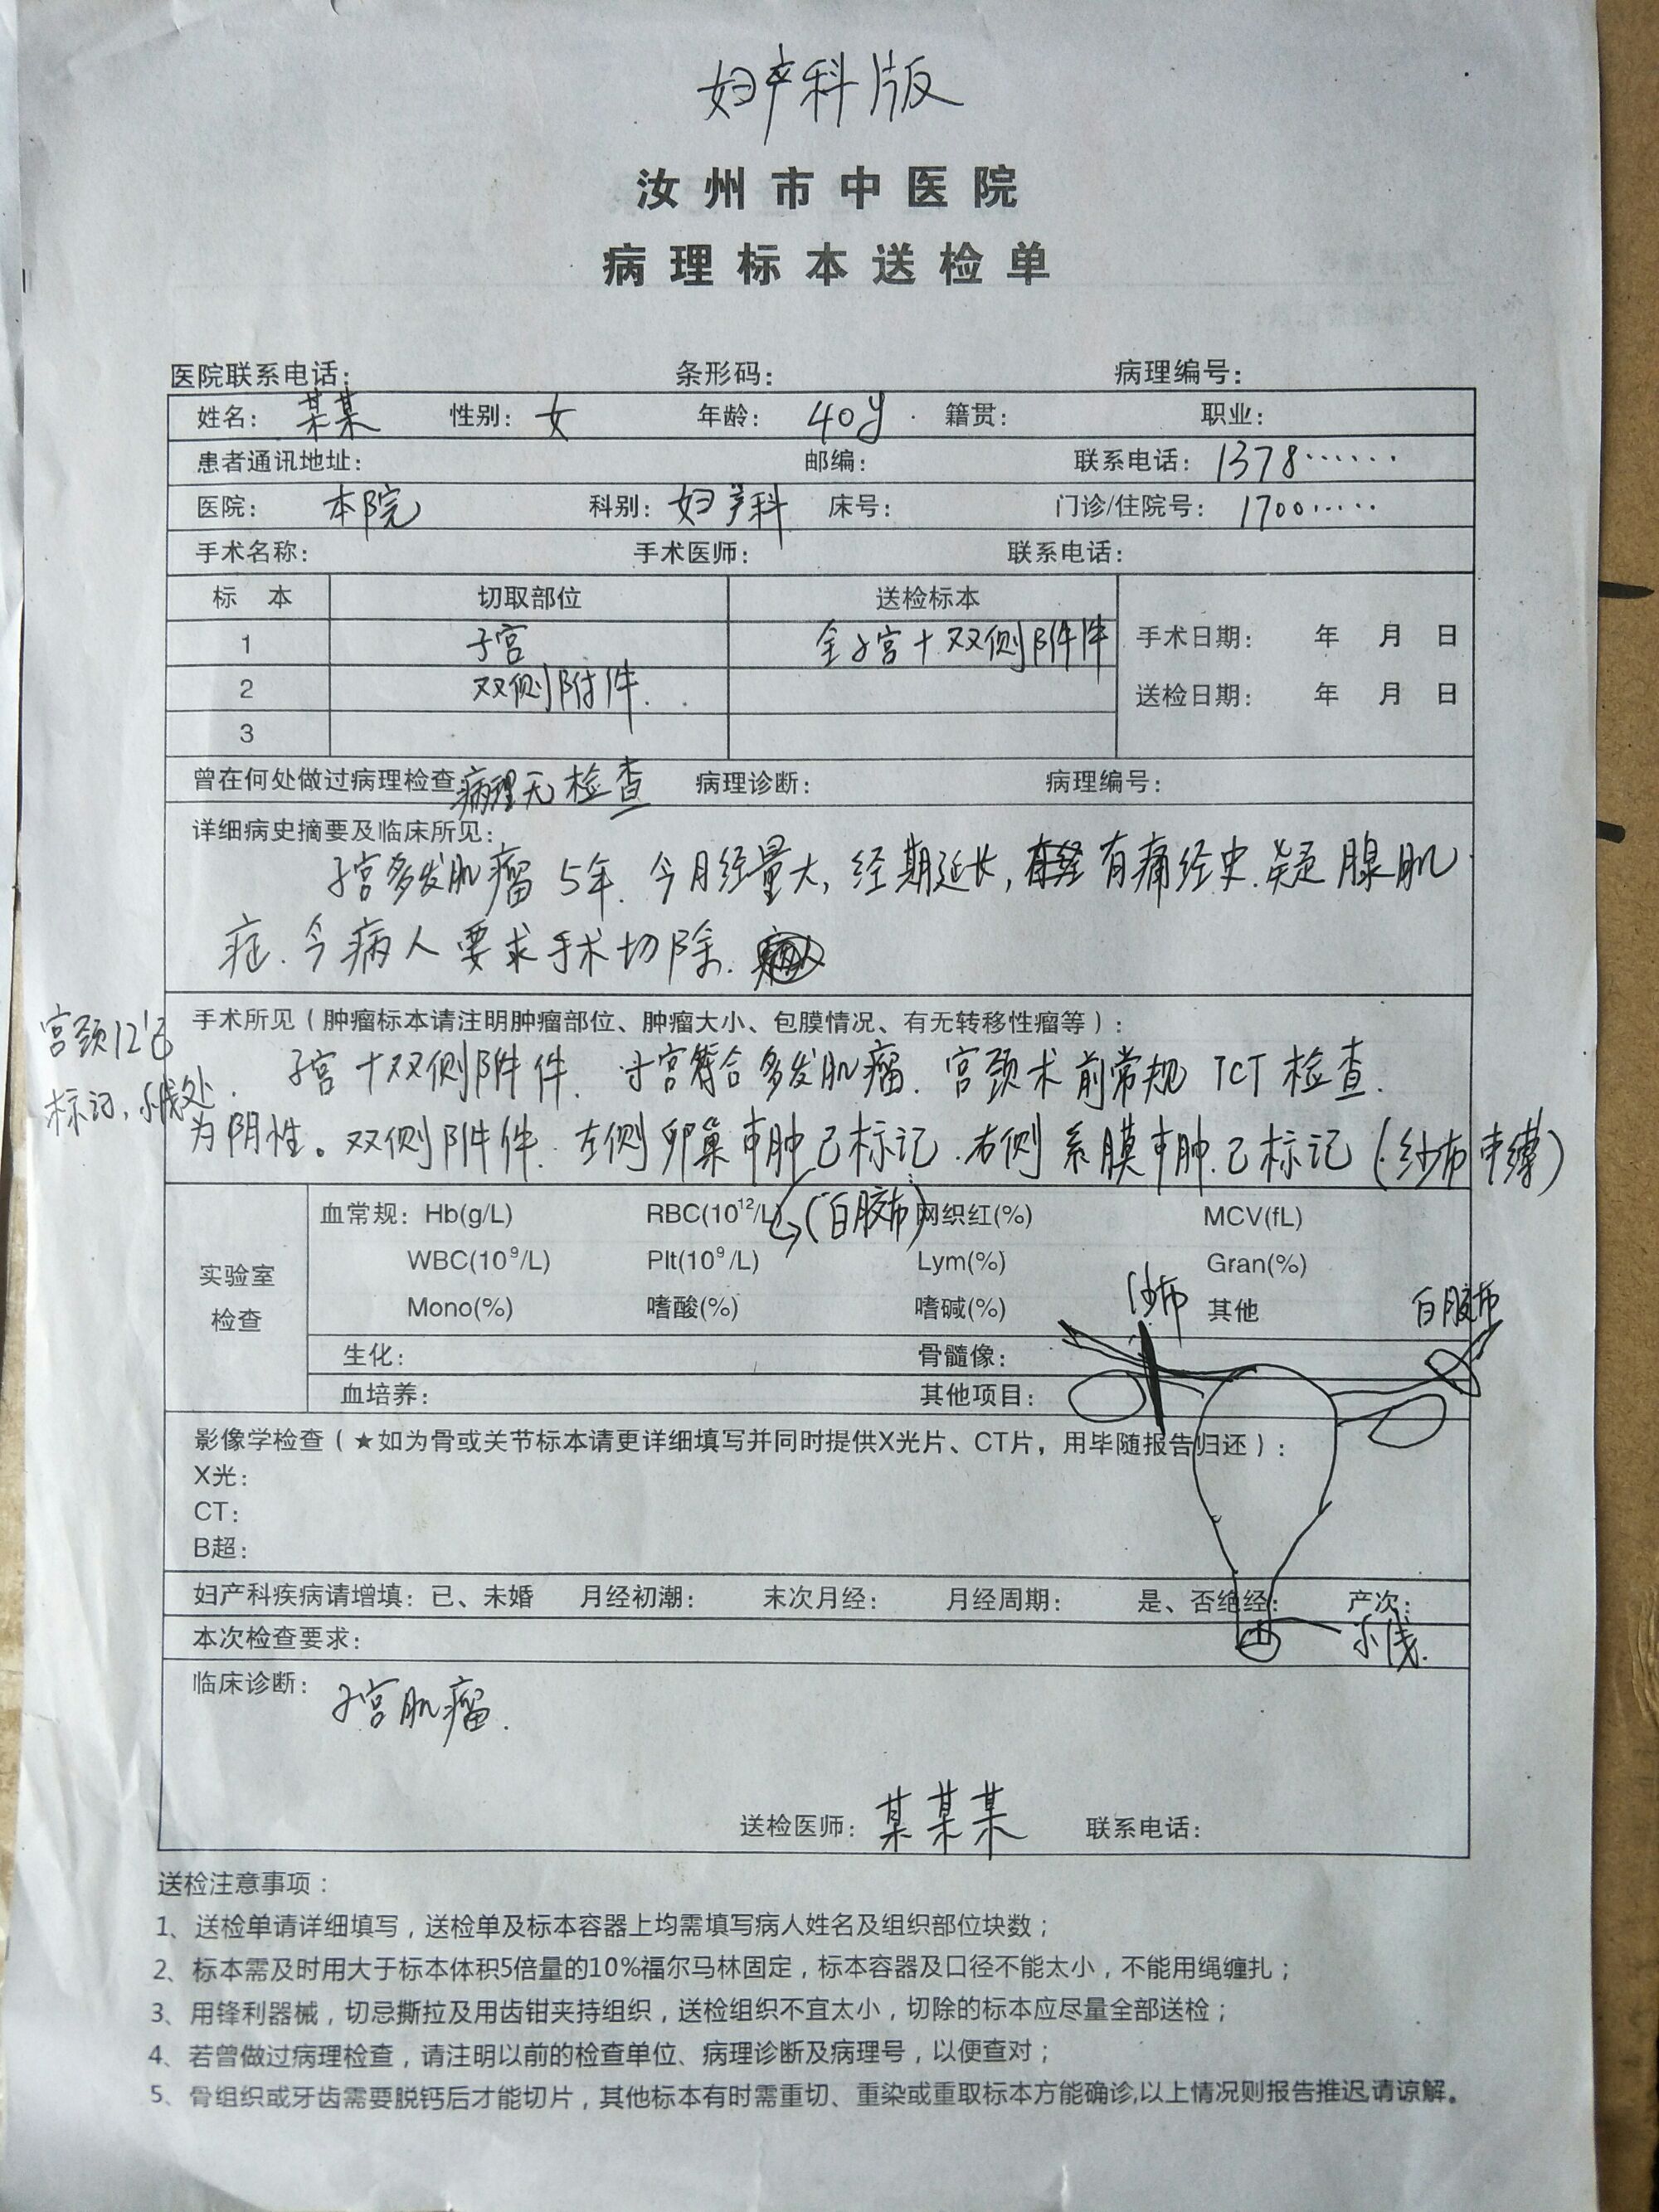 妇产科版
汝州市中医院
病理标本送检单
医院联系电话: 条形码: 病理编号:
姓名: 某某 性别: 女 年龄: 40y 籍贯: 职业:
患者通讯地址: 邮编: 联系电话: 1378······
医院: 本院 科别: 妇产科 床号: 门诊/住院号: 1700·····
手术名称: 手术医师: 联系电话:
标 本 切取部位 送检标本
1 子宫 全子宫+双侧附件 手术日期: 年 月 日
2 双侧附件. 送检日期: 年 月 日
3
曾在何处做过病理检查 病理无检查 病理诊断: 病理编号:
详细病史摘要及临床所见:
子宫多发肌瘤5年.今月经量大,经期延长,有痛经史.疑腺肌
症.今病人要求手术切除.
手术所见(肿瘤标本请注明肿瘤部位、肿瘤大小、包膜情况、有无转移性瘤等):
宫颈12点
标记,小线处.
子宫+双侧附件.子宫符合多发肌瘤.宫颈术前常规TCT检查.
为阴性。双侧附件.左侧卵巢囊肿已标记.右侧系膜囊肿.已标记(纱布束缚)
(白胶布)
实验室
检查
血常规: Hb(g/L) RBC(10¹²/L) 网织红(%) MCV(fL)
WBC(10⁹/L) Plt(10⁹/L) Lym(%) Gran(%)
Mono(%) 嗜酸(%) 嗜碱(%) 其他
纱布 白胶布
生化: 骨髓像:
血培养: 其他项目:
影像学检查(★如为骨或关节标本请更详细填写并同时提供X光片、CT片,用毕随报告归还):
X光:
CT:
B超:
妇产科疾病请增填: 已、未婚 月经初潮: 末次月经: 月经周期: 是、否绝经: 产次:
本次检查要求:
小线.
临床诊断: 子宫肌瘤.
送检医师: 某某某 联系电话:
送检注意事项:
1、送检单请详细填写,送检单及标本容器上均需填写病人姓名及组织部位块数;
2、标本需及时用大于标本体积5倍量的10%福尔马林固定,标本容器及口径不能太小,不能用绳缠扎;
3、用锋利器械,切忌撕拉及用齿钳夹持组织,送检组织不宜太小,切除的标本应尽量全部送检;
4、若曾做过病理检查,请注明以前的检查单位、病理诊断及病理号,以便查对;
5、骨组织或牙齿需要脱钙后才能切片,其他标本有时需重切、重染或重取标本方能确诊,以上情况则报告推迟,请谅解。